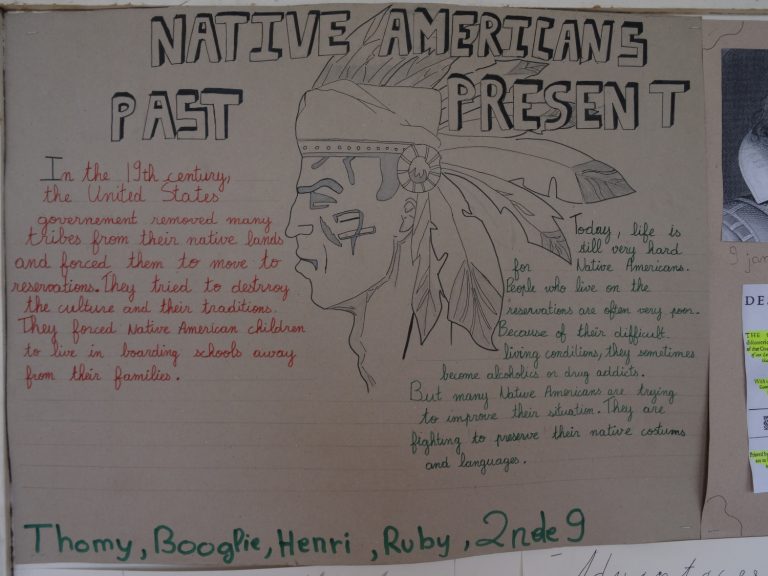 NATIVE AMERICANS
PAST
PRESENT
In the 19th century,
the United States
governement removed many
tribes from their native lands
and forced them to move to
reservations. They tried to destroy
the culture and their traditions.
They forced Native American children
to live in boarding schools away
from their families.
Today, life is
still very hard
for Native Americans.
People who live on the
reservations are often very poor.
Because of their difficult
living conditions, they sometimes
become alcoholics or drug addicts.
But many Native Americans are trying
to improve their situation. They are
fighting to preserve their native costums
and languages.
Thomy, Booglie, Henri, Ruby, 2nde 9
9 jan
DE
THE